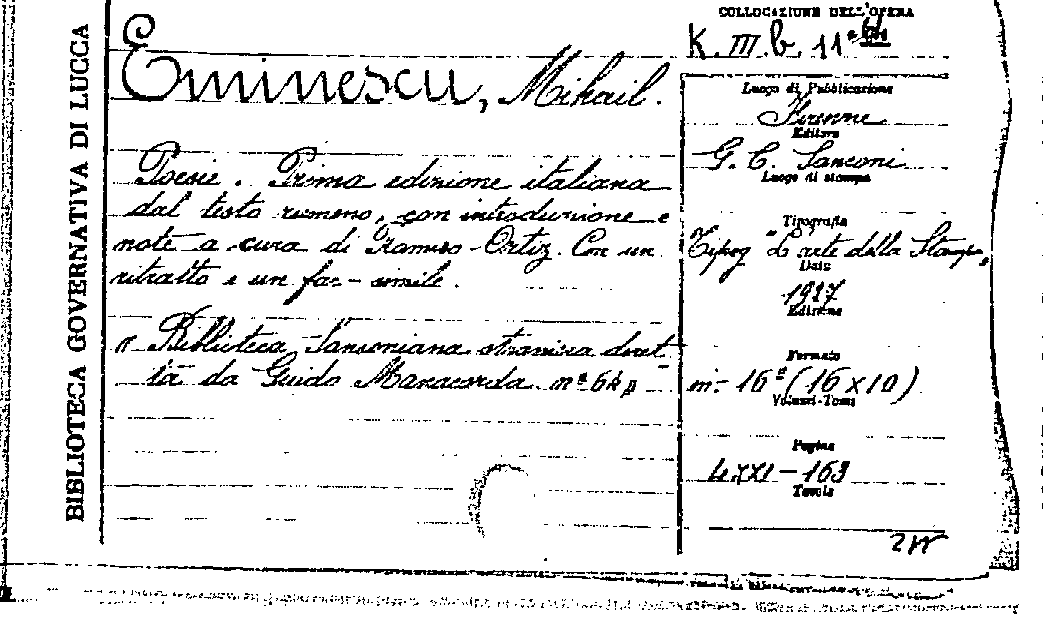 BIBLIOTECA GOVERNATIVA DI LUCCA
Eminescu, Mihail.
Poesie. Prima edizione italiana
dal testo rumeno, con introduzione e
note a cura di Ramiro Ortiz. Con un
ritratto e un fac-simile.
" Biblioteca Sansoniana straniera diret-
ta da Guido Manacorda nº 64 "
COLLOCAZIONE DELL'OPERA
K. III. b. 11
Luogo di Pubblicazione
Firenze
Editore
G. C. Sansoni
Luogo di stampa
Tipografia
Tipog "L'arte della Stampa"
Data
1927
Edizione
Formato
in- 16º (16 x 10)
Volumi-Tomi
Pagine
LXXI - 163
Tavole